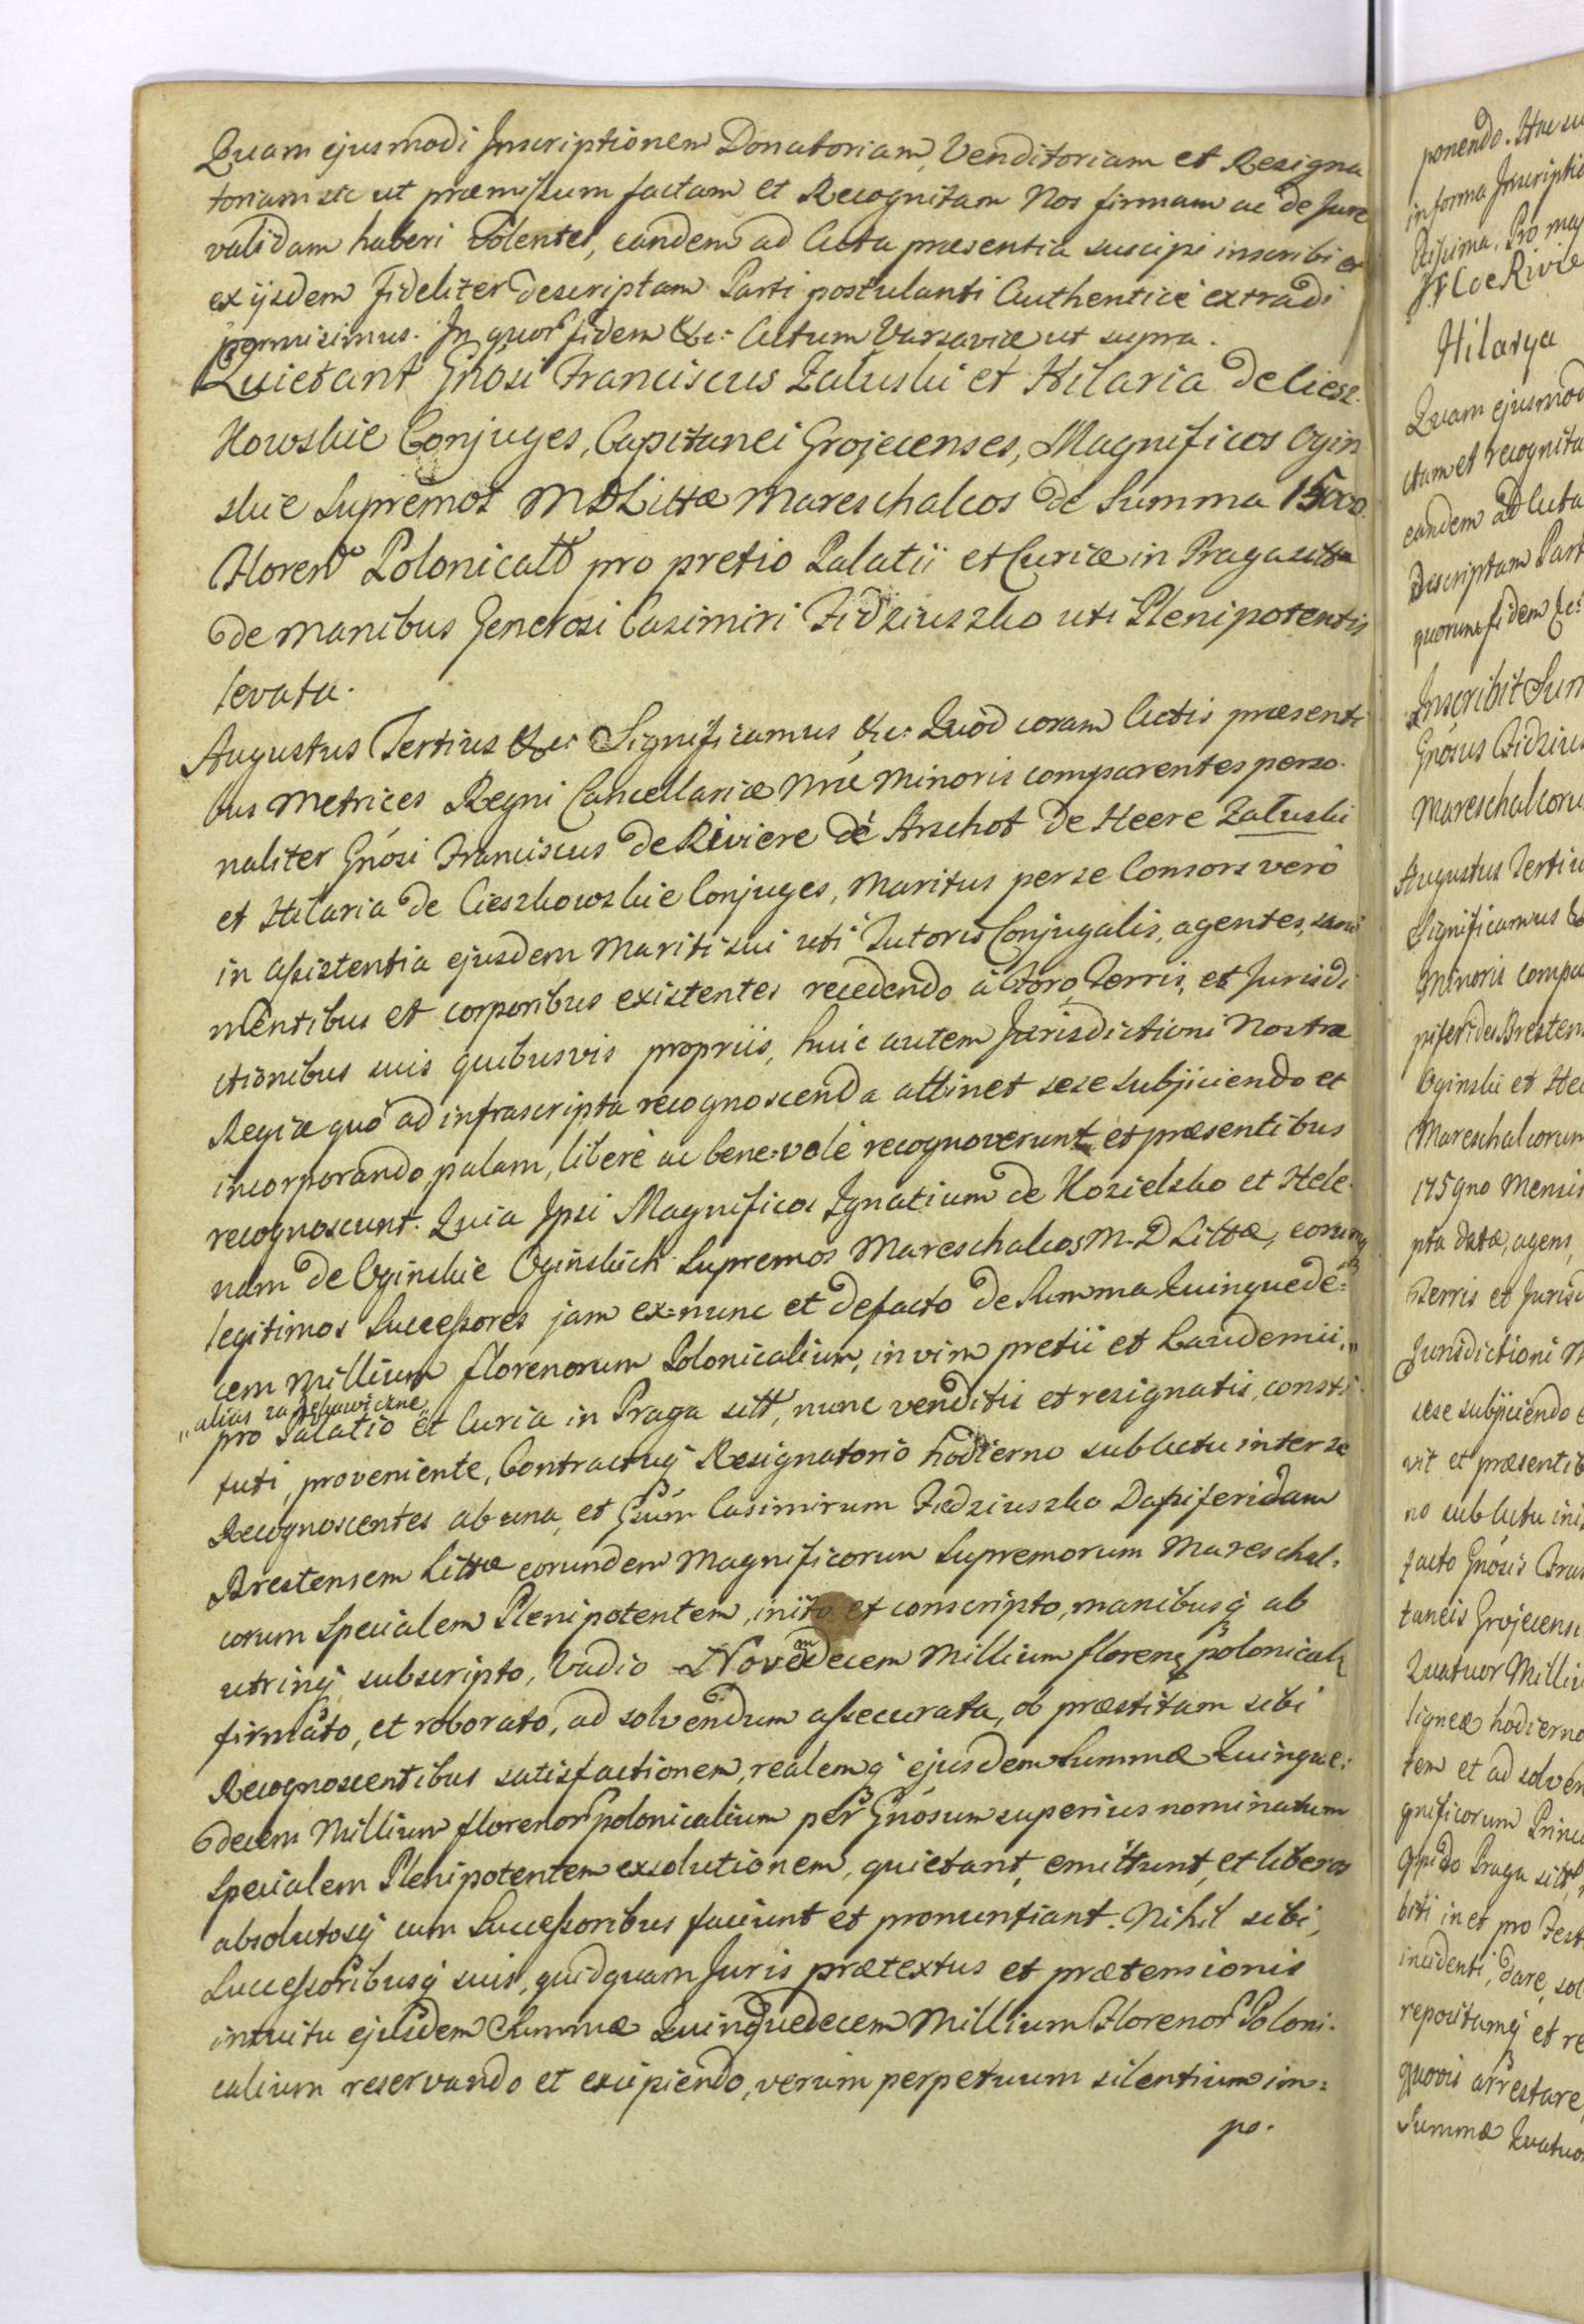 Quam ejusmodi Inscriptionem Donatoriam, Venditoriam et Resigna
toriam etc ut præmissum factam et Recognitam Nos firmam ac de Jure
validam haberi Volentes, eandem ad Acta præsentia suscipi inscribi et
ex ijsdem Fideliter descriptam Parti postulanti Authenticè extradi
permisimus. In quor fidem &c: Actum Varsaviæ ut supra.
Quietant Gnosi Franciscus Zaluski et Hilaria de Ciesz-
kowskie Conjuges, Capitanei Grojecenses, Magnificos Ogin
skie Supremos MDLittæ Mareschalcos de Summa 15000.
Floren Polonicall pro pretio Palatii et Curiæ in Praga
de manibus Generosi Casimiri Fidziuszko uti Plenipotentis
levata.
Augustus Tertius &c: Significamus &c: Quod coram Actis præsenti
bus Metrices Regni Cancellariæ Nrae Minoris comparentes perso-
naliter Gnosi Franciscus de Riviere de Arschot de Heere Zaluski
et Hilaria de Cieszkowskie Conjuges, Maritus per se Consors verò
in assistentia ejusdem Mariti sui uti Tutoris Conjugalis, agentes, sani
mentibus et corporibus existentes recedendo à Foro, Terris, et Jurisdi
ctionibus suis quibusvis propriis, huic autem Jurisdictioni Nostræ
Regiæ quò ad infrascripta recognoscenda attinet sese subjiciendo et
incorporando, palam, liberè ac bene-volè recognoverunt et præsentibus
recognoscunt. Quia Ipsi Magnificos Ignatium de Kozielsko et Hele-
nam de Oginskie Oginskich Supremos Mareschalcos M.D Littæ, eorumq
legitimos Successores jam ex=nunc et defacto de Summa Quinquede=
cem Millium florenorum Polonicalium, in vim pretii et Laudemii,,
,,alias za
pro Palatio et Curia in Praga sitt, nunc venditis et resignatis, consti
tuti, proveniente, Contractuq Resignatorio hodierno sub Actu inter se
Recognoscentes ab una, et Gsum Casimirum Fidziuszko Dapiferidam
Brestensem Littæ eorundem Magnificorum Supremorum Mareschal-
corum Specialem Plenipotentem, inito et conscripto, manibusq ab
utrinq subscripto, Vadio Novemdecem Millium floren polonical
firmato, et roborato, ad solvendum assecurata, ob præstitam sibi
Recognoscentibus satisfactionem, realemq ejusdem Summæ Quinque=
decem Millium florenor polonicalium per Gnosum superius nominatum
Specialem Plenipotentem exsolutionem, quietant, emittunt, et liberos
absolutosq cum Successoribus faciunt et pronuntiant. Nihil sibi,
Successoribusq suis, quidquam Juris prætextus et prætensionis
intuitu ejusdem Summæ Quinquedecem Millium Florenor Poloni-
calium reservando et excipiendo, verùm perpetuum silentium im=
po.
ponendo. Hac su
in forma Inscriptio
Pro maj
de Rivie
Hilarya
Quam ejusmod
ctam et recognita
eandem ad Acta
descriptam Part
quorum fidem &c:
Inscribit Sum
Gnosus Fidzius
Mareschalcoru
Augustus Tertiu
Significamus &
Minoris compa
piferides Bresten
Oginski et Hel
Mareschalcorum
175 gno Mensis
pta data, agens,
Terris et Jurisd
Jurisdictioni N
sese subjiciendo e
vit et præsentib
no sub Actu ini
facto Gnosis Fran
taneis Grojecens
Quatuor Milli
ligneæ hodierno
tem et ad solven
gnificorum Princ
Oppido Praga sitt
biti in et pro Fest
incidenti, dare, sol
repositamq et re
quovis arrestare
Summæ Quatuo